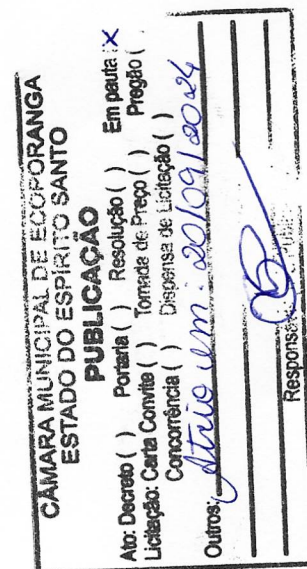 CÂMARA MUNICIPAL DE ECOPORANGA
ESTADO DO ESPÍRITO SANTO
PUBLICAÇÃO
Ato: Decreto ( ) Portaria ( ) Resolução ( ) Em pauta : X
Licitação: Carta Convite ( ) Tomada de Preço ( ) Pregão ( 
Concorrência ( ) Dispensa de Licitação ( )
Outros: Atrio em: 20/09/2024
Respons